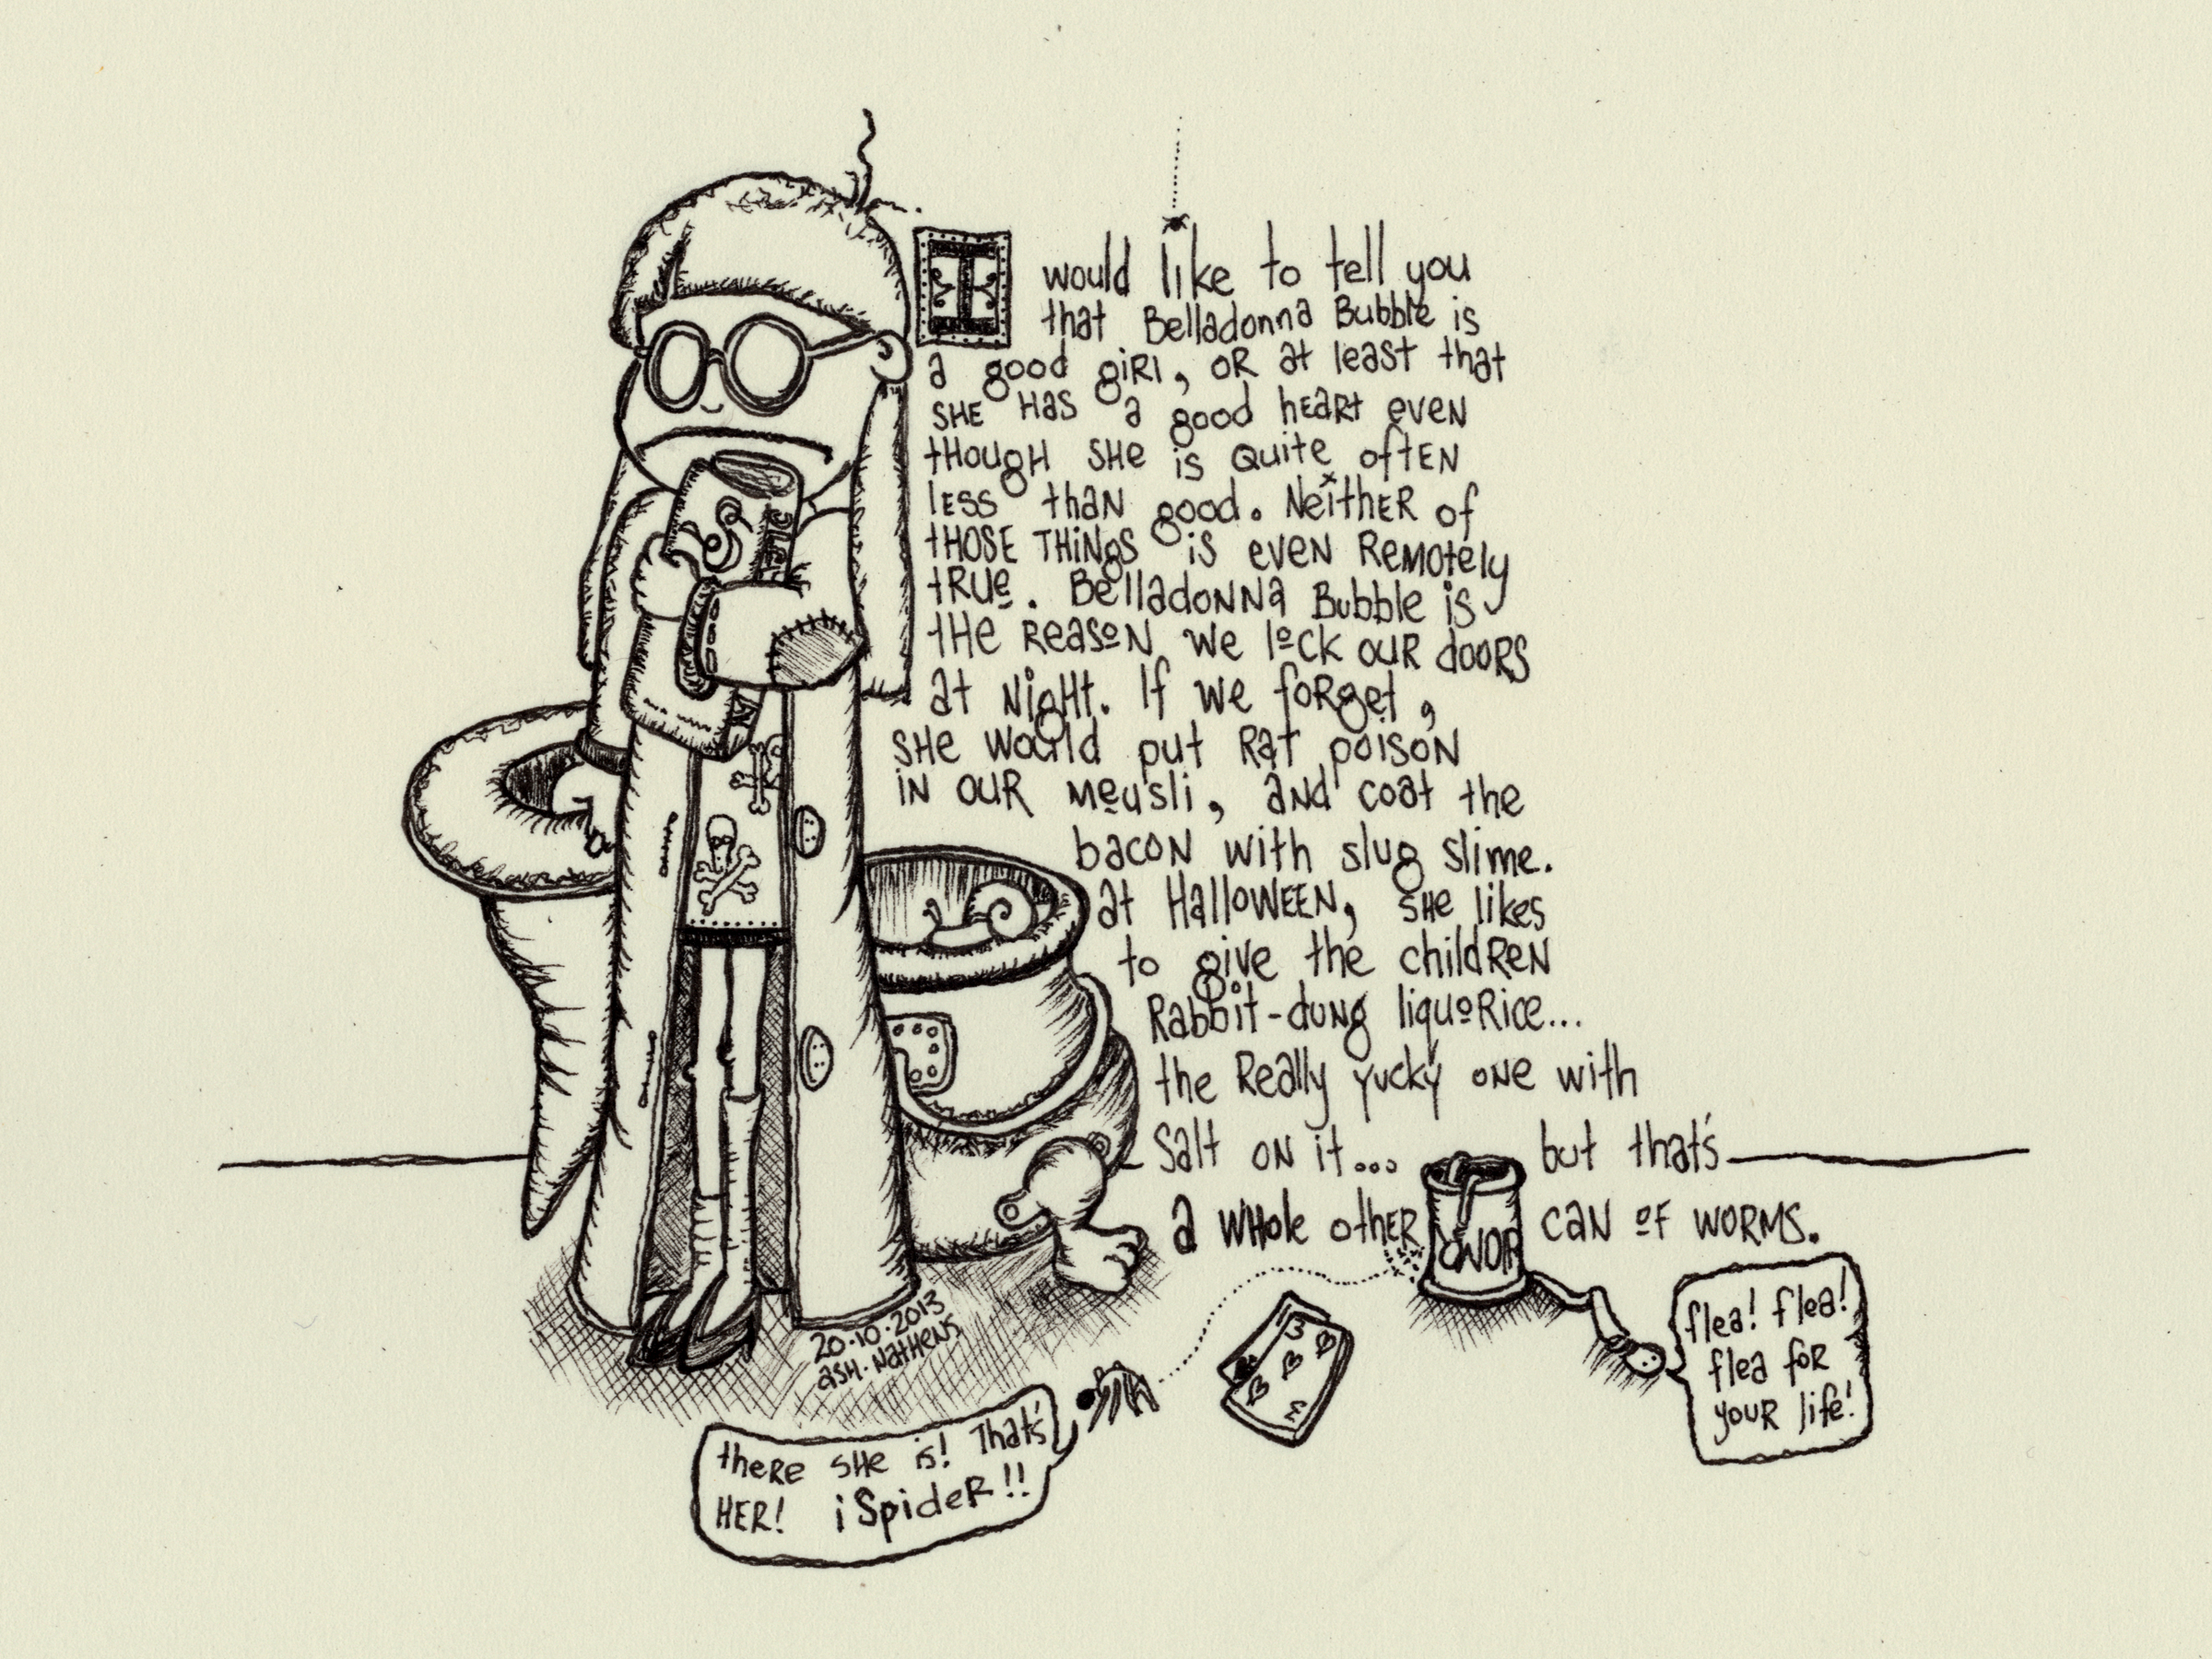 I would like to tell you
that Belladonna Bubble is
a good giRl, OR at least that
SHE Has a good hEaRt eveN
tHougH SHe is Quite oftEN
lESS thaN good. NeitHER of
tHOSE THiNgs iS eveN ReMotely
tRUe. BelladoNNa Bubble is
tHe ReasoN we lock ouR dooRS
at NigHt. If we foRget,
SHe would put Rat poisoN
iN OUR Meusli, aNd coat the
bacoN with slug slime.
at HalloWEEN, SHe likes
to give the childReN
Rabbit-duNg liquoRice...
the Really yucky oNe with
Salt oN it... but that's
a wHole otHER caN of woRMS.
WOR
flea! flea!
flea foR
youR life!
20.10.2013
aSH.NatHeNS
theRe SHe is! That's
HER! iSpideR!!
3
3